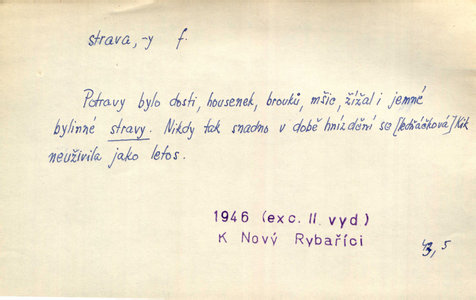 strava, -y f.
Potravy bylo dosti, housenek, brouků, mšic, žížal i jemné
bylinné stravy. Nikdy tak snadno v době hnízdění se [ledňáčková] Kik
neuživila jako letos.
1946 (exc. II. vyd)
K Nový Rybařící
43, 5